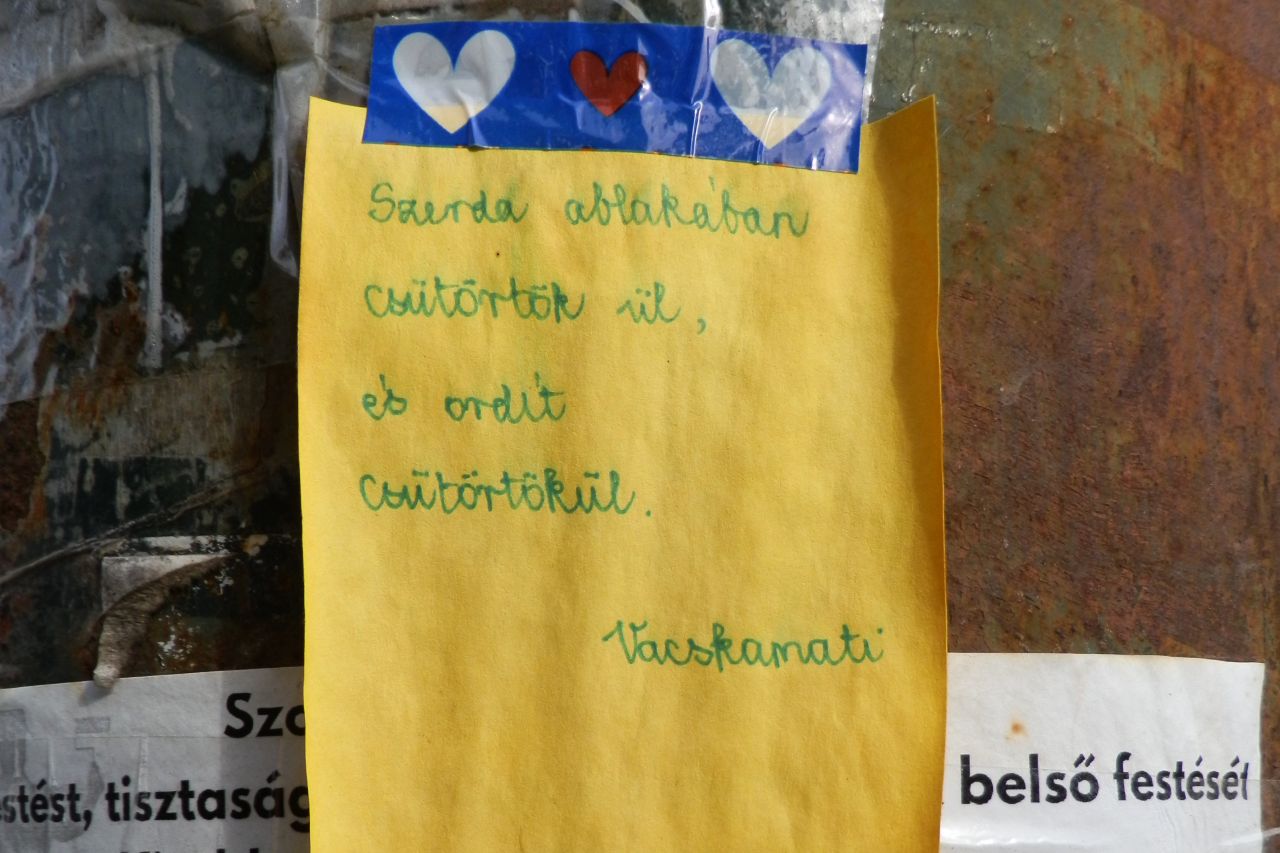 Szerda ablakában
csütörtök ül,
és ordít
csütörtökül.
Vacskamati
Szo
estést, tisztaság
belső festését